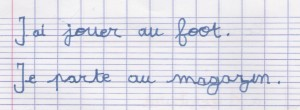 J'ai jouer au foot.
Je parte au magazin.